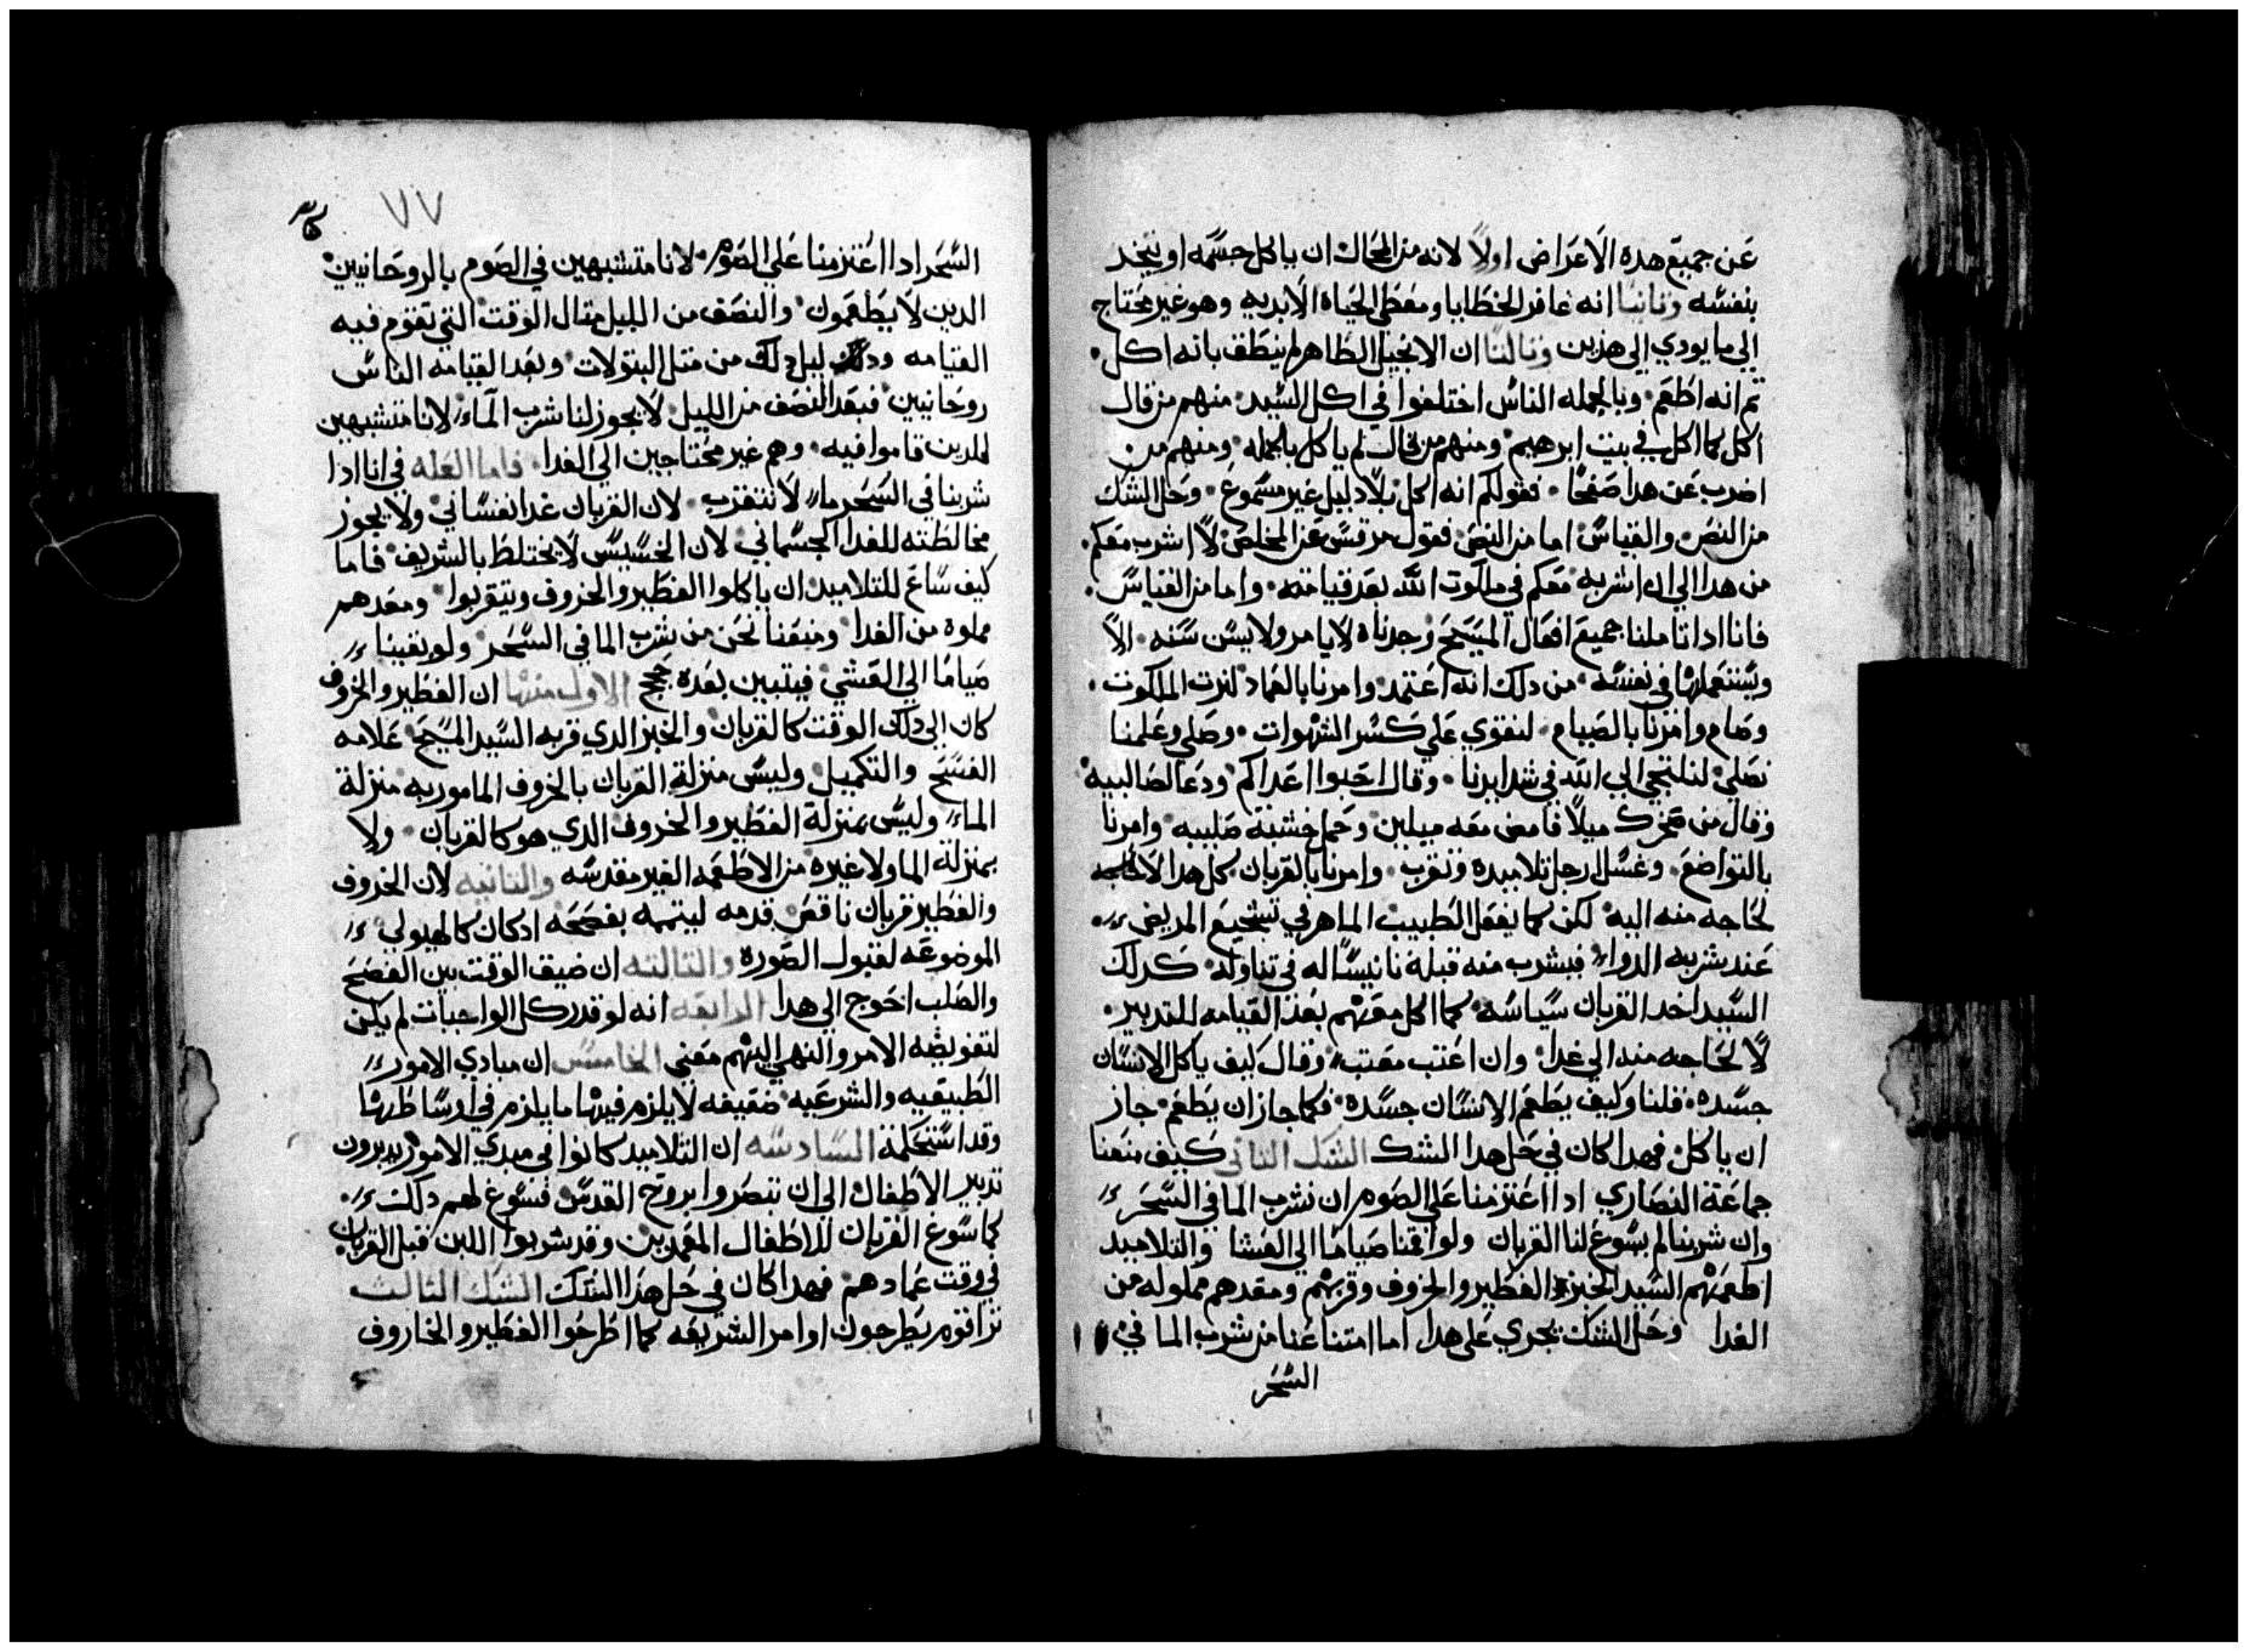 عن جميع هده الاعراض اولاً لانه من المحال ان ياكل جسمه او يتخد
بنفسه وثانيا انه غافر الخطايا ومعطي الحياه الابديه وهو غير محتاج
الي ما يودي الي هذين وثالثا ان الانجيل الطاهر لم ينطق بانه اكل
ثم انه اطعم وبالجمله الناس اختلفوا في اكل السيد منهم من قال
اكل كما اكل في بيت ابرهيم ومنهم من قال لم ياكل بالجمله ومنهم من
اضرب عن هدا صفحا فقولكم انه اكل بلا دليل غير مسموع وحل الشك
من النص والقياس اما من النص فقول مرقس عن المخلص لا اشرب معكم
من هدا الي ان اشربه معكم في ملكوت الله بعد قيامته واما من القياس
فانا ادا تاملنا جميع افعال المسيح وجدناه لا يامر ولا يسن سنه الا
ويستعملها في نفسه من دلك انه اعتمد وامرنا بالعماد لنرت الملكوت
وصام وامرنا بالصيام لنقوي علي كسر الشهوات وصلي وعلمنا
نصلي لنلتجي الي الله في شدايدنا وقال احبوا اعداكم ودعا لصالبيه
وقال من سخرك ميلاً فامض معه ميلين وحمل خشبة صليبه وامرنا
بالتواضع وغسل ارجل تلاميده وتقرب وامرنا بالقربان كل هدا لا
لحاجه منه اليه لكن كما يفعل الطبيب الماهر في تشجيع المريض
عند شربه الدواء فيشرب منه قبله تانيسًا له في تناوله كدلك
السيد اخد القربان سياسه كما اكل معهم بعد القيامه للتدبير
لا لحاجه منه الي غدا وان اعتب معتب وقال كيف ياكل الانسان
جسده قلنا وكيف يطعم الانسان جسده فكما جاز ان يطعم جاز
ان ياكل فهدا كان في حل هدا الشك الشك الثاني كيف منعنا
جماعة النصاري ادا اعتزمنا علي الصوم ان نشرب الما في السحر
وان شربنا لم يسوغ لنا القربان ولو اقمنا صياما الي العشا والتلاميد
اطعمهم السيد الخبز الفطير والخروف وقربهم ومعدهم مملوله من
الغدا وحل الشك يجري علي هدا اما امتناعنا من شرب الما في
السحر
٧٧
السحر ادا اعتزمنا علي الصوم لانا متشبهين في الصوم بالروحانيين
الدين لا يطعمون والنصف من الليل مثال الوقت التي تقوم فيه
القيامه ودلك ليل دلك من مثل البتولات وبعد القيامه الناس
روحانيين فبعد النصف من الليل لا يجوز لنا شرب الماء لانا متشبهين
للدين قاموا فيه وهم غير محتاجين الي الغدا فاما العله في انا ادا
شربنا في السحر ماء لا نتقرب لان القربان غدا نفساني ولا يجوز
مخالطته للغدا الجسماني لان الخسيس لا يختلط بالشريف فاما
كيف ساغ للتلاميد ان ياكلوا الفطير والخروف ويتقربوا ومعدهم
مملوه من الغدا ومنعنا نحن من شرب الما في السحر ولو بقينا
صياما الي العشي فيتبين بعدة حجج الاولى منها ان الفطير والخروف
كان الي دلك الوقت كالقربان والخبز الدي قربه السيد المسيح علامه
الفسح والتكميل وليس منزلة القربان بالخروف المامور به منزلة
الماء وليس بمنزلة الفطير والخروف الدي هو كالقربان ولا
بمنزلة الما ولا غيره من الاطعمه الغير مقدسه والثانيه لان الخروف
والفطير قربان ناقص قدمه ليتممه بفصحه ادكان كالهيولي
الموضوعه لقبول الصوره والثالثه ان ضيق الوقت بين الفصح
والصلب احوج الي هدا الرابعه انه لو قدر كل الواجبات لم يكن
لتفويضه الامر والنهي اليهم معني الخامسه ان مبادي الامور
الطبيعيه والشرعيه ضعيفه لا يلزم فيها ما يلزم في اوساطها
وقد استحكمة السادسه ان التلاميد كانوا في مبدي الامور يدبرون
تدبير الاطفال الي ان تبصروا بروح القدس فسوغ لهم دلك
كما سوغ القربان للاطفال المعمدين وقد شربوا اللبن قبل القربان
في وقت عمادهم فهدا كان في حل هذا الشك الشك الثالث
نرا قوم يطرحون اوامر الشريعه كما اطرحوا الفطير والخاروف